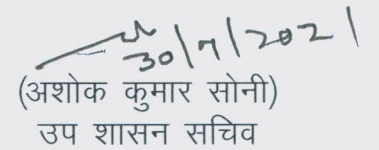 30/7/2021
(अशोक कुमार सोनी)
उप शासन सचिव